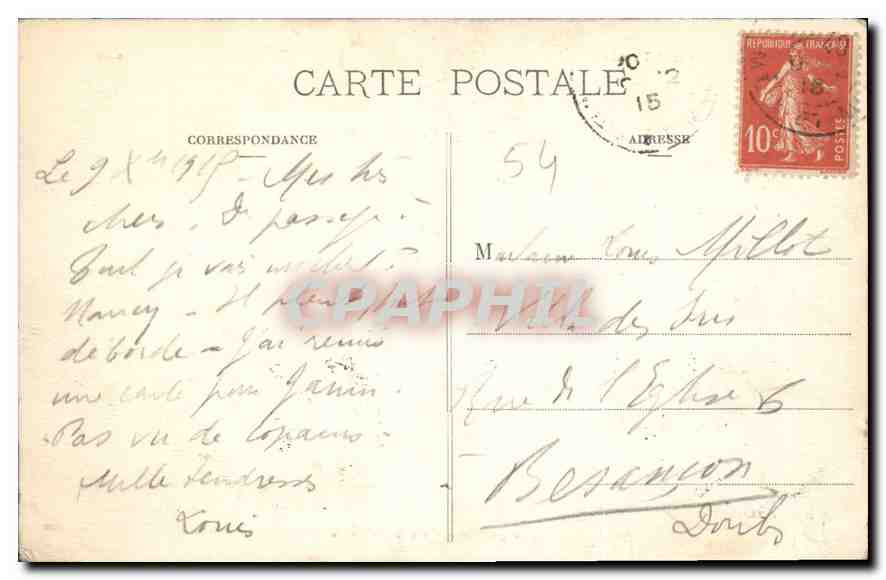 CARTE POSTALE
CORRESPONDANCE
Le 9 Xbre 1915 - Mes très
chers. De passage à
Toul je vais à
Nancy - Il pleut tout
déborde - J'ai remis
une carte pour Janin.
Pas vu de copains -
Mille tendresses
Louis
ADRESSE
54
Madame Louis Millot
Villa des Iris
Rue de l'Eglise 6
Besançon
Doubs
REPUBLIQUE FRANÇAISE
10c
POSTES
12
15
CPAPHIL